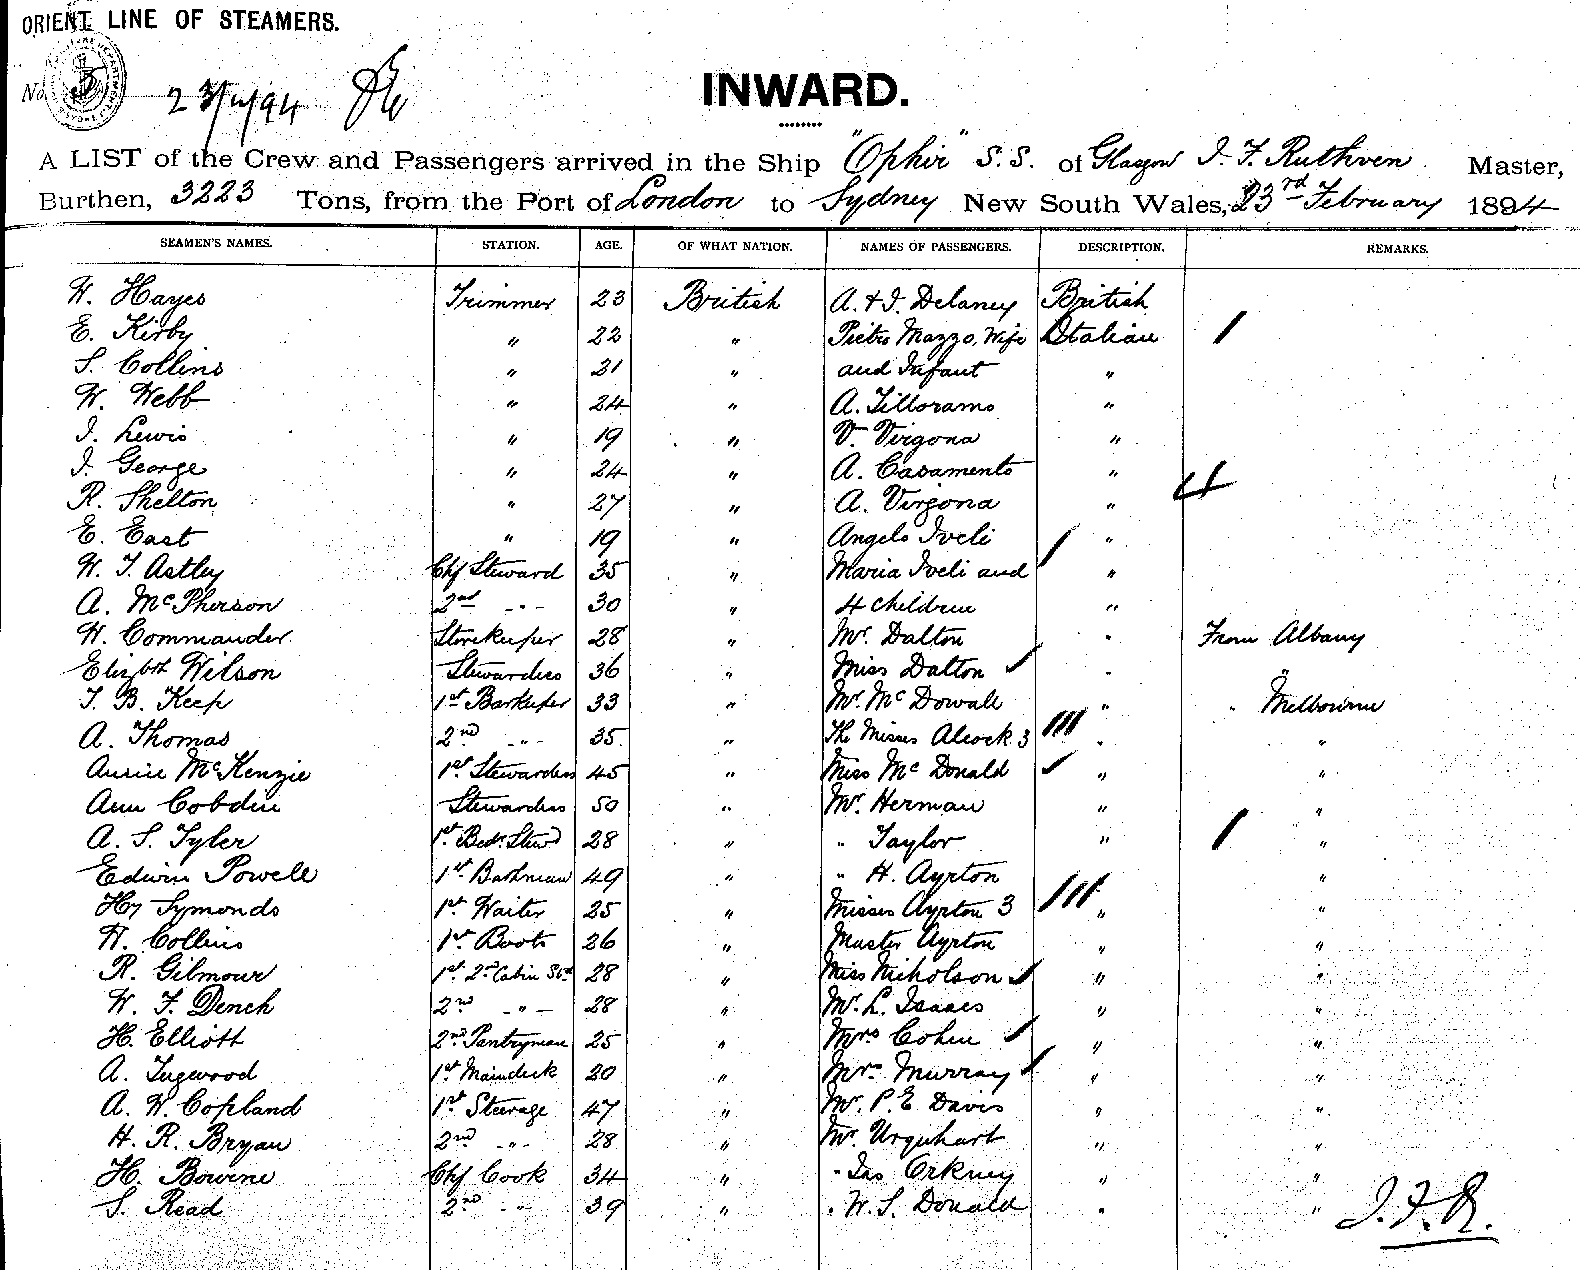 ORIENT LINE OF STEAMERS.
No. 23/2/94
INWARD.
A LIST of the Crew and Passengers arrived in the Ship "Ophir" S.S. of Glasgow J. F. Ruthven Master,
Burthen, 3223 Tons, from the Port of London to Sydney New South Wales, 23rd February 1894
SEAMEN'S NAMES. STATION. AGE. OF WHAT NATION. NAMES OF PASSENGERS. DESCRIPTION. REMARKS.
W. Hayes Trimmer 23 British A. & J. Delaney British
E. Kirby " 22 " Pietro Mazzo, Wife Italian /
S. Collins " 21 " and Infant "
W. Webb " 24 " A. "
J. Lewis " 19 " V. Virgona "
J. George " 24 " A. Casamento "
R. Shelton " 27 " A. Virgona " 4
E. East " 19 " Angelo Iveli / "
W. T. Astley Chf Steward 35 " Maria Iveli and "
A. McPherson 2nd -"- 30 " 4 children "
W. Commander Storekeeper 28 " Mr. Dalton " From Albany
Elizbth Wilson Stewardess 36 " Miss Dalton "
T. B. Keep 1st Barkeeper 33 " Mr. McDowall " " Melbourne
A. Thomas 2nd -"- 35 " The Misses Alcock 3 /// " "
McKenzie 1st Stewardess 45 " Miss McDonald " "
Ann Cobden Stewardess 50 " Mr. Herman "
A. S. Tyler 1st Bedr. Stewd 28 " " Taylor " / "
Edwin Powell 1st Bathman 49 " " H. Ayrton "
Hy Symonds 1st Waiter 25 " Misses Ayrton 3 /// " "
H. Collins 1st Boots 26 " Master Ayrton " "
R. Gilmour 1st 2nd Cabin Std 28 " Miss Nicholson " "
W. F. Dench 2nd -"- 28 " Mr. L. Isaacs " "
H. Elliott 2nd Pantryman 25 " Mrs Cohen " "
A. Tugwood 1st Maindeck 20 " Mrs Murray " "
A. W. Copland 1st Steerage 47 " Mr. P. E. Davis " "
H. R. Bryan 2nd -"- 28 " Mr. Urquhart " "
H. Bowrne Chf Cook 34 " " Jas Orkney " "
S. Read 2nd -"- 39 " " W. S. Donald " "
J.F.R.